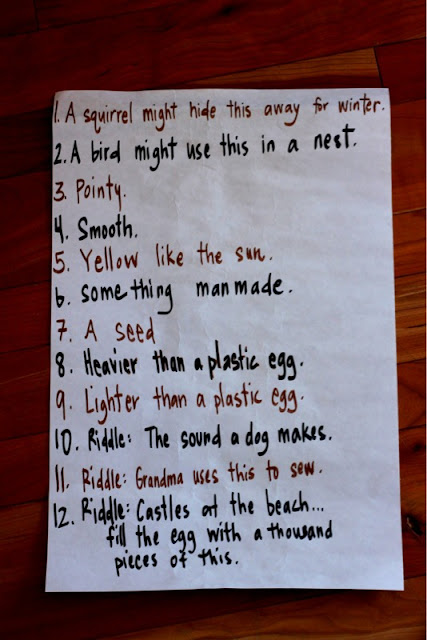 1. A squirrel might hide this away for winter.
2. A bird might use this in a nest.
3. Pointy.
4. Smooth.
5. Yellow like the sun.
6. something manmade.
7. A seed
8. Heavier than a plastic egg.
9. Lighter than a plastic egg.
10. Riddle: The sound a dog makes.
11. Riddle: Grandma uses this to sew.
12. Riddle: Castles at the beach...
fill the egg with a thousand
pieces of this.